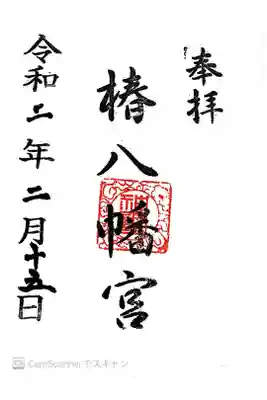 奉拝
椿八幡宮
令和二年二月十五日
CamScanner でスキャン